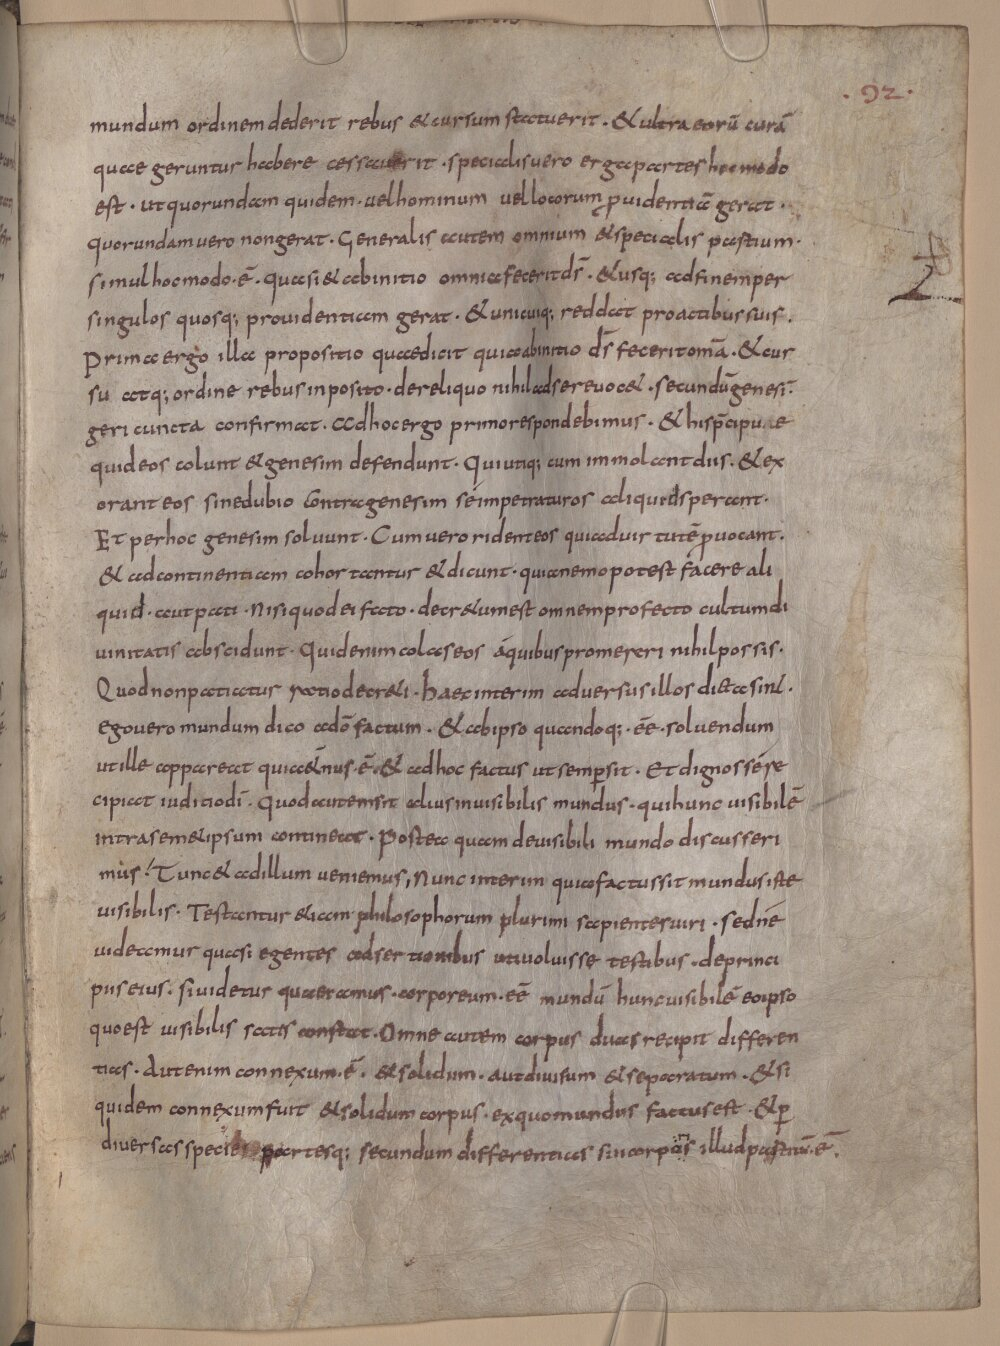 . 92 .
mundum ordinem dederit rebus & cursum statuerit . & ultra eorū curā
quae geruntur habere cessauerit . specialis uero erga partes hoc modo
est . ut quorundam quidem . uel hominum uel locorum ꝓuidentiā gerat .
quorundam uero non gerat . Generalis autem omnium & specialis partium .
simul hoc modo . ē . quasi & ab initio omnia fecerit d̄s . & usq; ad finem per
singulos quosq; prouidentiam gerat . & unicuiq; reddat pro actibus suis .
Prima ergo illa propositio quae dicit quia ab initio d̄s fecerit om̄a . & cur
su atq; ordine rebus inposito . de reliquo nihil ad se reuoc& . secundū genesī .
geri cuncta confirmat . Ad hoc ergo primo respondebimus . & his p̄cipuae
qui deos colunt & genesim defendunt . Qui utiq; cum immolant diis . & ex
orant eos sine dubio contra genesim se impetraturos aliquid sperant .
Et per hoc genesim soluunt . Cum uero rident eos qui ad uirtutē ꝓuocant .
& ad continentiam cohortantur & dicunt . quia nemo potest facere ali
quid . aut pati . nisi quod ei facto . decr&um est omnem profecto cultum di
uinitatis abscidunt . Quid enim colas eos á quibus promereri nihil possis .
Quod non patiatur ratio decr&i . haec interim aduersus illos dicta sint .
ego uero mundum dico a dō factum . & ab ipso quandoq; . ēē . soluendum
ut ille appareat qui a&nus . ē . & ad hoc factus ut semp sit . Et dignos se re
cipiat iuditio dī . Quod autem sit alius inuisibilis mundus . qui hunc uisibilē
intra sem&ipsum contineat . Postea quam de uisibili mundo discusseri
mus . Tunc & ad illum ueniemus , Nunc interim quia factus sit mundus iste
uisibilis . Testantur &iam philosophorum plurimi sapientes uiri . sed ne
uideamus quasi egentes adsertionibus uti uoluisse testibus . de princi
piis eius . si uidetur quaeramus . corporeum . eē mundū hunc uisibilē eo ipso
quo est uisibilis satis constat . Omne autem corpus duas recipit differen
tias . Aut enim connexum . ē . & solidum . aut diuisum & separatum . & si
quidem connexum fuit & solidum corpus . ex quo mundus factus est . & ꝑ
diuersas species partesq; secundum differentias sin corpus illud